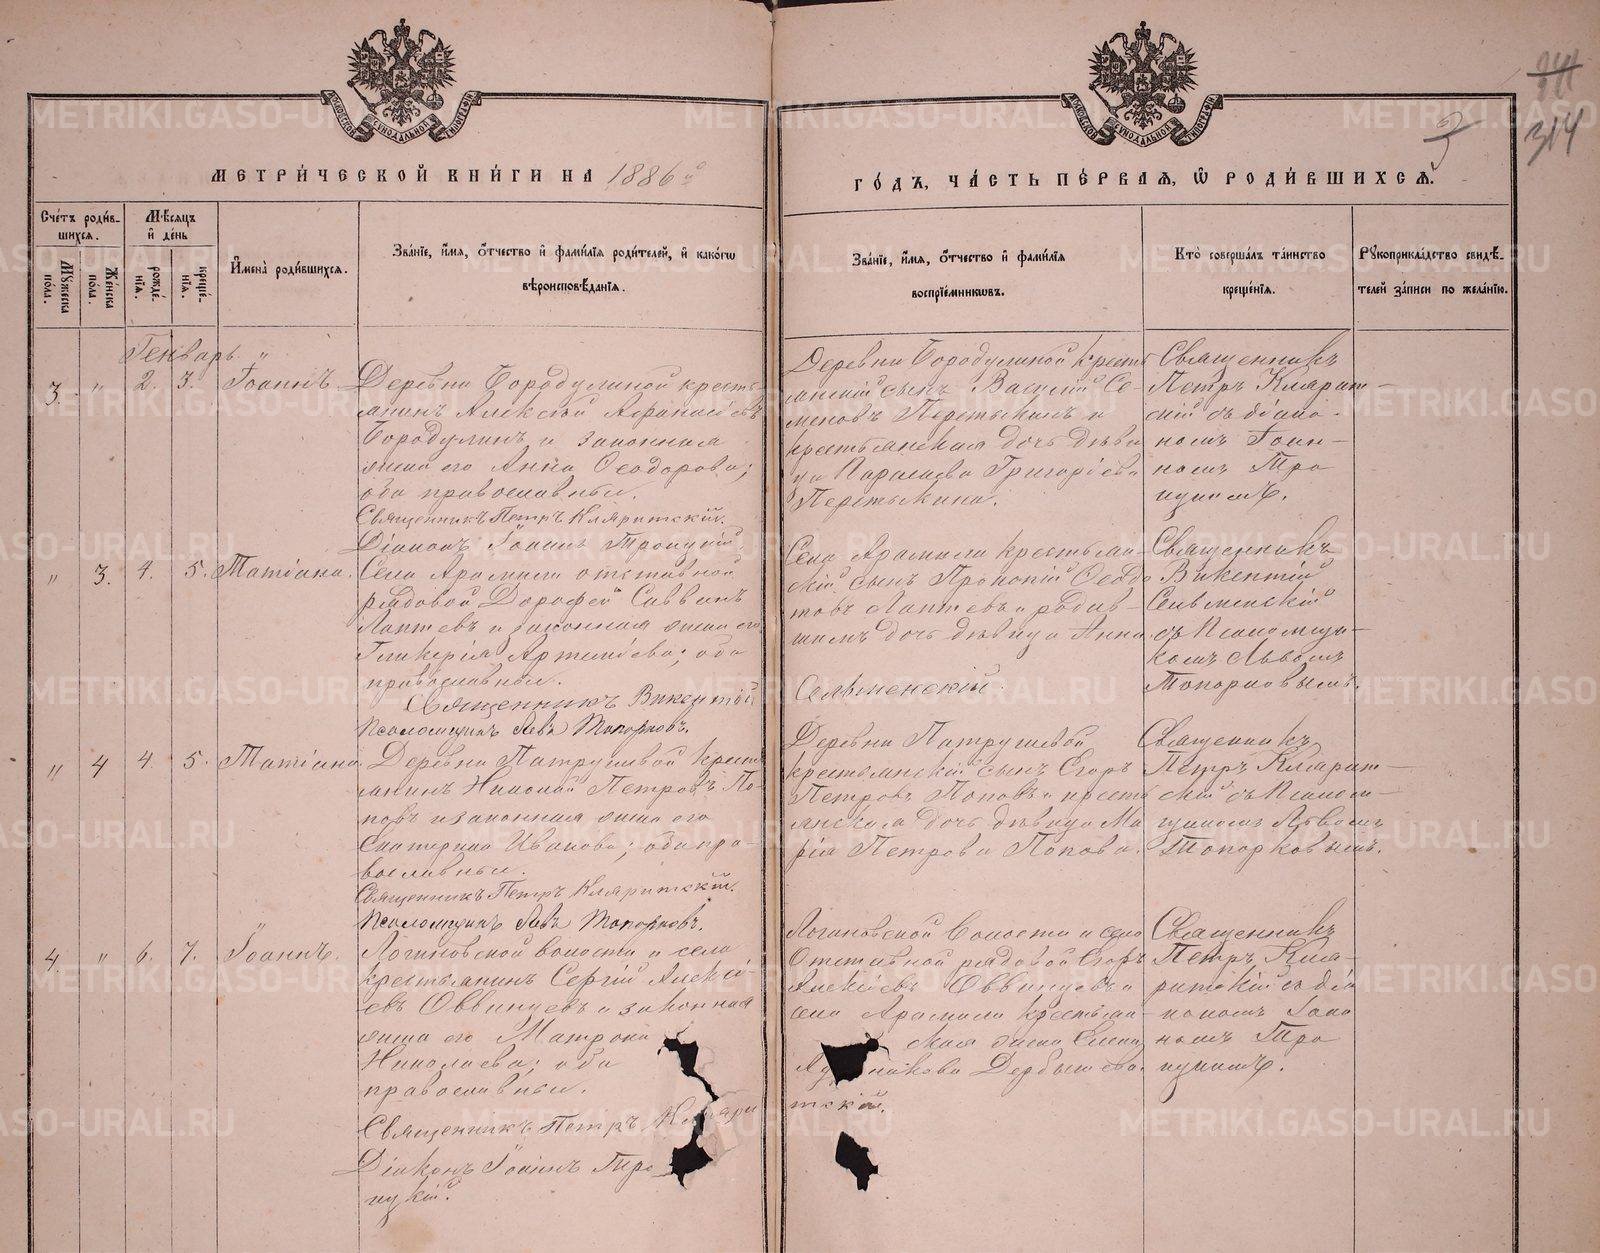 МЕТРИ́ЧЕСКОЙ КНИ́ГИ НА 1886й
ГО́ДЪ, ЧА́СТЬ ПЕ́РВАѦ, Ѡ РОДИ́ВШИХСѦ.
3
314
Сче́тъ роди́в-
шихсѧ.
Мѣсѧцъ
и де́нь
Мꙋжеска
по́ла.
Же́нска
по́ла.
рожде́-
нїѧ.
креще́-
нїѧ.
Имена̀ роди́вшихсѧ.
Зва́нїе, и́мѧ, о́тчество и фами́лїѧ роди́телей, и како́гѡ
вѣроисповѣ́данїѧ.
Зва́нїе, и́мѧ, о́тчество и фами́лїѧ
воспрїе́мникѡвъ.
Кто̀ соверша́лъ та́инство
креще́нїѧ.
Рꙋкоприкла́дство свидѣ́-
телей за́писи по жела́нїю.
Генварь
3. " 2. 3. Іоаннъ.
Деревни Бородулиной кресть-
янинъ Алексѣй Афанасіевъ
Бородулинъ и законная
жена его Анна Ѳеодорова;
оба православные.
Священникъ Петръ Кляритскій.
Діаконъ Іоаннъ Троицкій.
Деревни Бородулиной кресть
янскій сынъ Василій Се-
меновъ Перетыкинъ и
крестьянская дочь дѣви
ца Параскева Григоріева
Перетыкина.
Священникъ
Петръ Клярит-
скій съ діако-
номъ Іоан-
номъ Тро
ицкимъ.
" 3. 4. 5. Татіана.
Села Арамили отставной
рядовой Дорофей Саввинъ
Лаптевъ и законная жена его
Гликерія Артеміева; оба
православные.
Священникъ Викентій
Псаломщикъ Левъ Топорковъ.
Села Арамили крестьян-
скій сынъ Прокопій Ѳедо
товъ Лаптевъ и
дочь дѣвица Анна
Сельменскій.
Священникъ
Викентій
Сельменскій
съ Псаломщи-
комъ Львомъ
Топорковымъ.
" 4 4. 5. Татіана.
Деревни Патрушевой кресть
янинъ Николай Петровъ По-
повъ и законная жена его
Екатерина Иванова; оба пра-
вославные.
Священникъ Петръ Кляритскій.
Псаломщикъ Левъ Топорковъ.
Деревни Патрушевой
крестьянскій сынъ Егоръ
Петровъ Поповъ и кресть
янская дочь дѣвица Ма
рія Петрова Попова.
Священникъ
Петръ Клярит-
скій съ Псалом-
щикомъ Львомъ
Топорковымъ.
4. " 6. 7. Іоаннъ.
Логиновской волости и села
крестьянинъ Сергій Алексі-
евъ Оввинцевъ и законная
жена его Матрона
Николаева; оба
православные.
Священникъ Петръ Кляри
Діаконъ Іоаннъ Тро
ицкій.
Логиновской волости и села
Отставной рядовой Егоръ
Алексіевъ Оввинцевъ и
села Арамили крестьян-
ская жена Елена
Дербышева.
тскій.
Священникъ
Петръ Кля-
ритскій съ діа
кономъ Іоан
номъ Тро
ицкимъ.
METRIKI.GASO-URAL.RU